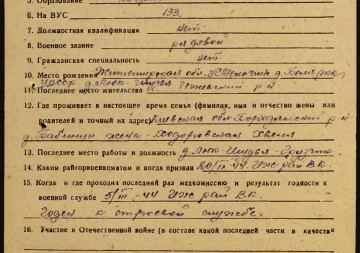 5. Образование
6. На ВУС 133.
7. Должностная квалификация нет.
8. Военное звание рядовой
9. Гражданская специальность нет.
10. Место рождения Житомирская обл. д.
УАССР д. Люк- Ижевский р-н
11. Последнее место жительства
12. Где проживает в настоящее время семья (фамилия, имя и отчество жены или
родителей и точный их адрес) Киевская обл. р-н
д. жена-Ходоровская
13. Последнее место работы и должность д. Люк- грузчик
14. Каким райгорвоенкоматом и когда призван 20/III-44 Иж рай В.К.
15. Когда и где проходил последний раз медкомиссию и результат годности к
военной службе 5/III-44 Иж рай В.К.
Годен к строевой службе.
16. Участие в Отечественной войне (в составе какой последней части в качеств